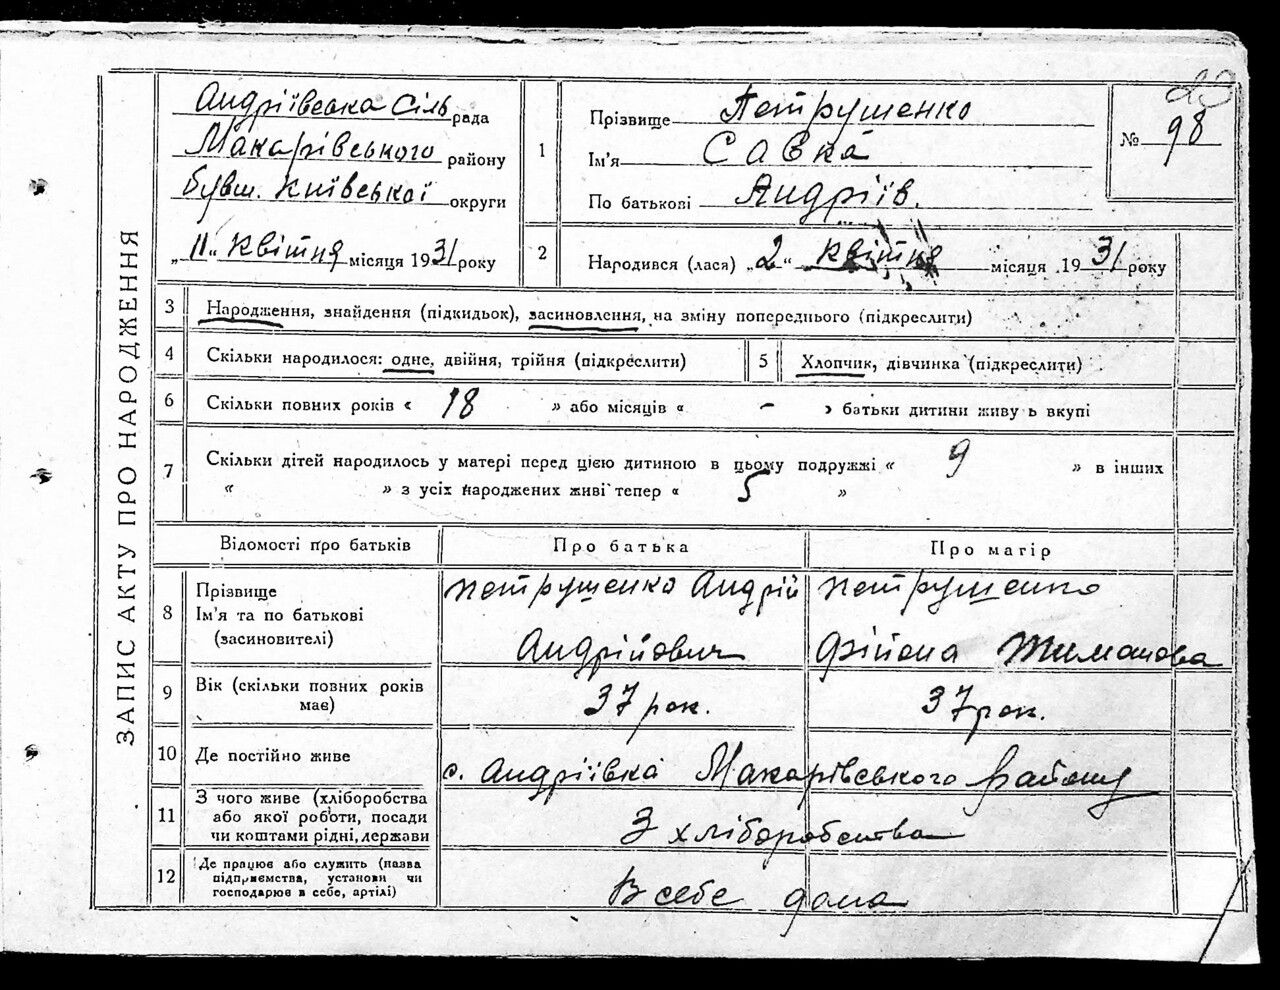 ЗАПИС АКТУ ПРО НАРОДЖЕННЯ
Андріївська Сіль рада
Макарівського району
бувш. Київської округи
„11“ Квітня місяця 1931 року
1
Прізвище Петрушенко
Ім'я Савка
По батькові Андріїв.
№ 98
2
Народився (лася) „2“ Квітня місяця 1931 року
3 Народження, знайдення (підкидьок), засиновлення, на зміну попереднього (підкреслити)
4 Скільки народилося: одне, двійня, трійня (підкреслити)
5 Хлопчик, дівчинка (підкреслити)
6 Скільки повних років « 18 » або місяців « - » батьки дитини живуть вкупі
7 Скільки дітей народилось у матері перед цією дитиною в цьому подружжі « 9 » в інших
« » з усіх народжених живі тепер « 5 »
Відомості про батьків Про батька Про матір
8 Прізвище
Ім'я та по батькові
(засиновителі)
Петрушенко Андрій
Андрійович
Петрушенко
Фійона Тимохова
9 Вік (скільки повних років
має)
37 рок. 37 рок.
10 Де постійно живе с. Андріївка Макарівського Району
11 З чого живе (хліборобства
або якої роботи, посади
чи коштами рідні, держави
З хліборобства
12 Де працює або служить (назва
підприємства, установи чи
господарює в себе, артілі)
В себе дома